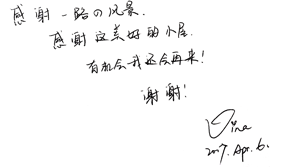 感谢一路の风景.
感谢这美好的小屋.
有机会我还会再来!
谢谢!
Vina
2017. Apr. 6.